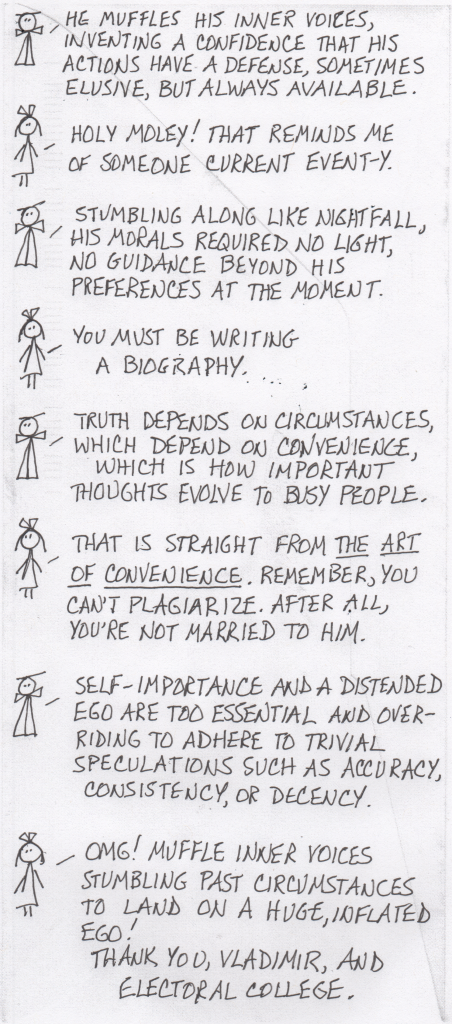 HE MUFFLES HIS INNER VOICES,
INVENTING A CONFIDENCE THAT HIS
ACTIONS HAVE A DEFENSE, SOMETIMES
ELUSIVE, BUT ALWAYS AVAILABLE.
HOLY MOLEY! THAT REMINDS ME
OF SOMEONE CURRENT EVENT-Y.
STUMBLING ALONG LIKE NIGHTFALL,
HIS MORALS REQUIRED NO LIGHT,
NO GUIDANCE BEYOND HIS
PREFERENCES AT THE MOMENT.
YOU MUST BE WRITING
A BIOGRAPHY.....,
TRUTH DEPENDS ON CIRCUMSTANCES,
WHICH DEPEND ON CONVENIENCE,
WHICH IS HOW IMPORTANT
THOUGHTS EVOLVE TO BUSY PEOPLE.
THAT IS STRAIGHT FROM THE ART
OF CONVENIENCE. REMEMBER, YOU
CAN'T PLAGIARIZE. AFTER ALL,
YOU'RE NOT MARRIED TO HIM.
SELF-IMPORTANCE AND A DISTENDED
EGO ARE TOO ESSENTIAL AND OVER-
RIDING TO ADHERE TO TRIVIAL
SPECULATIONS SUCH AS ACCURACY,
CONSISTENCY, OR DECENCY.
OMG! MUFFLE INNER VOICES
STUMBLING PAST CIRCUMSTANCES
TO LAND ON A HUGE, INFLATED
EGO!
THANK YOU, VLADIMIR, AND
ELECTORAL COLLEGE.